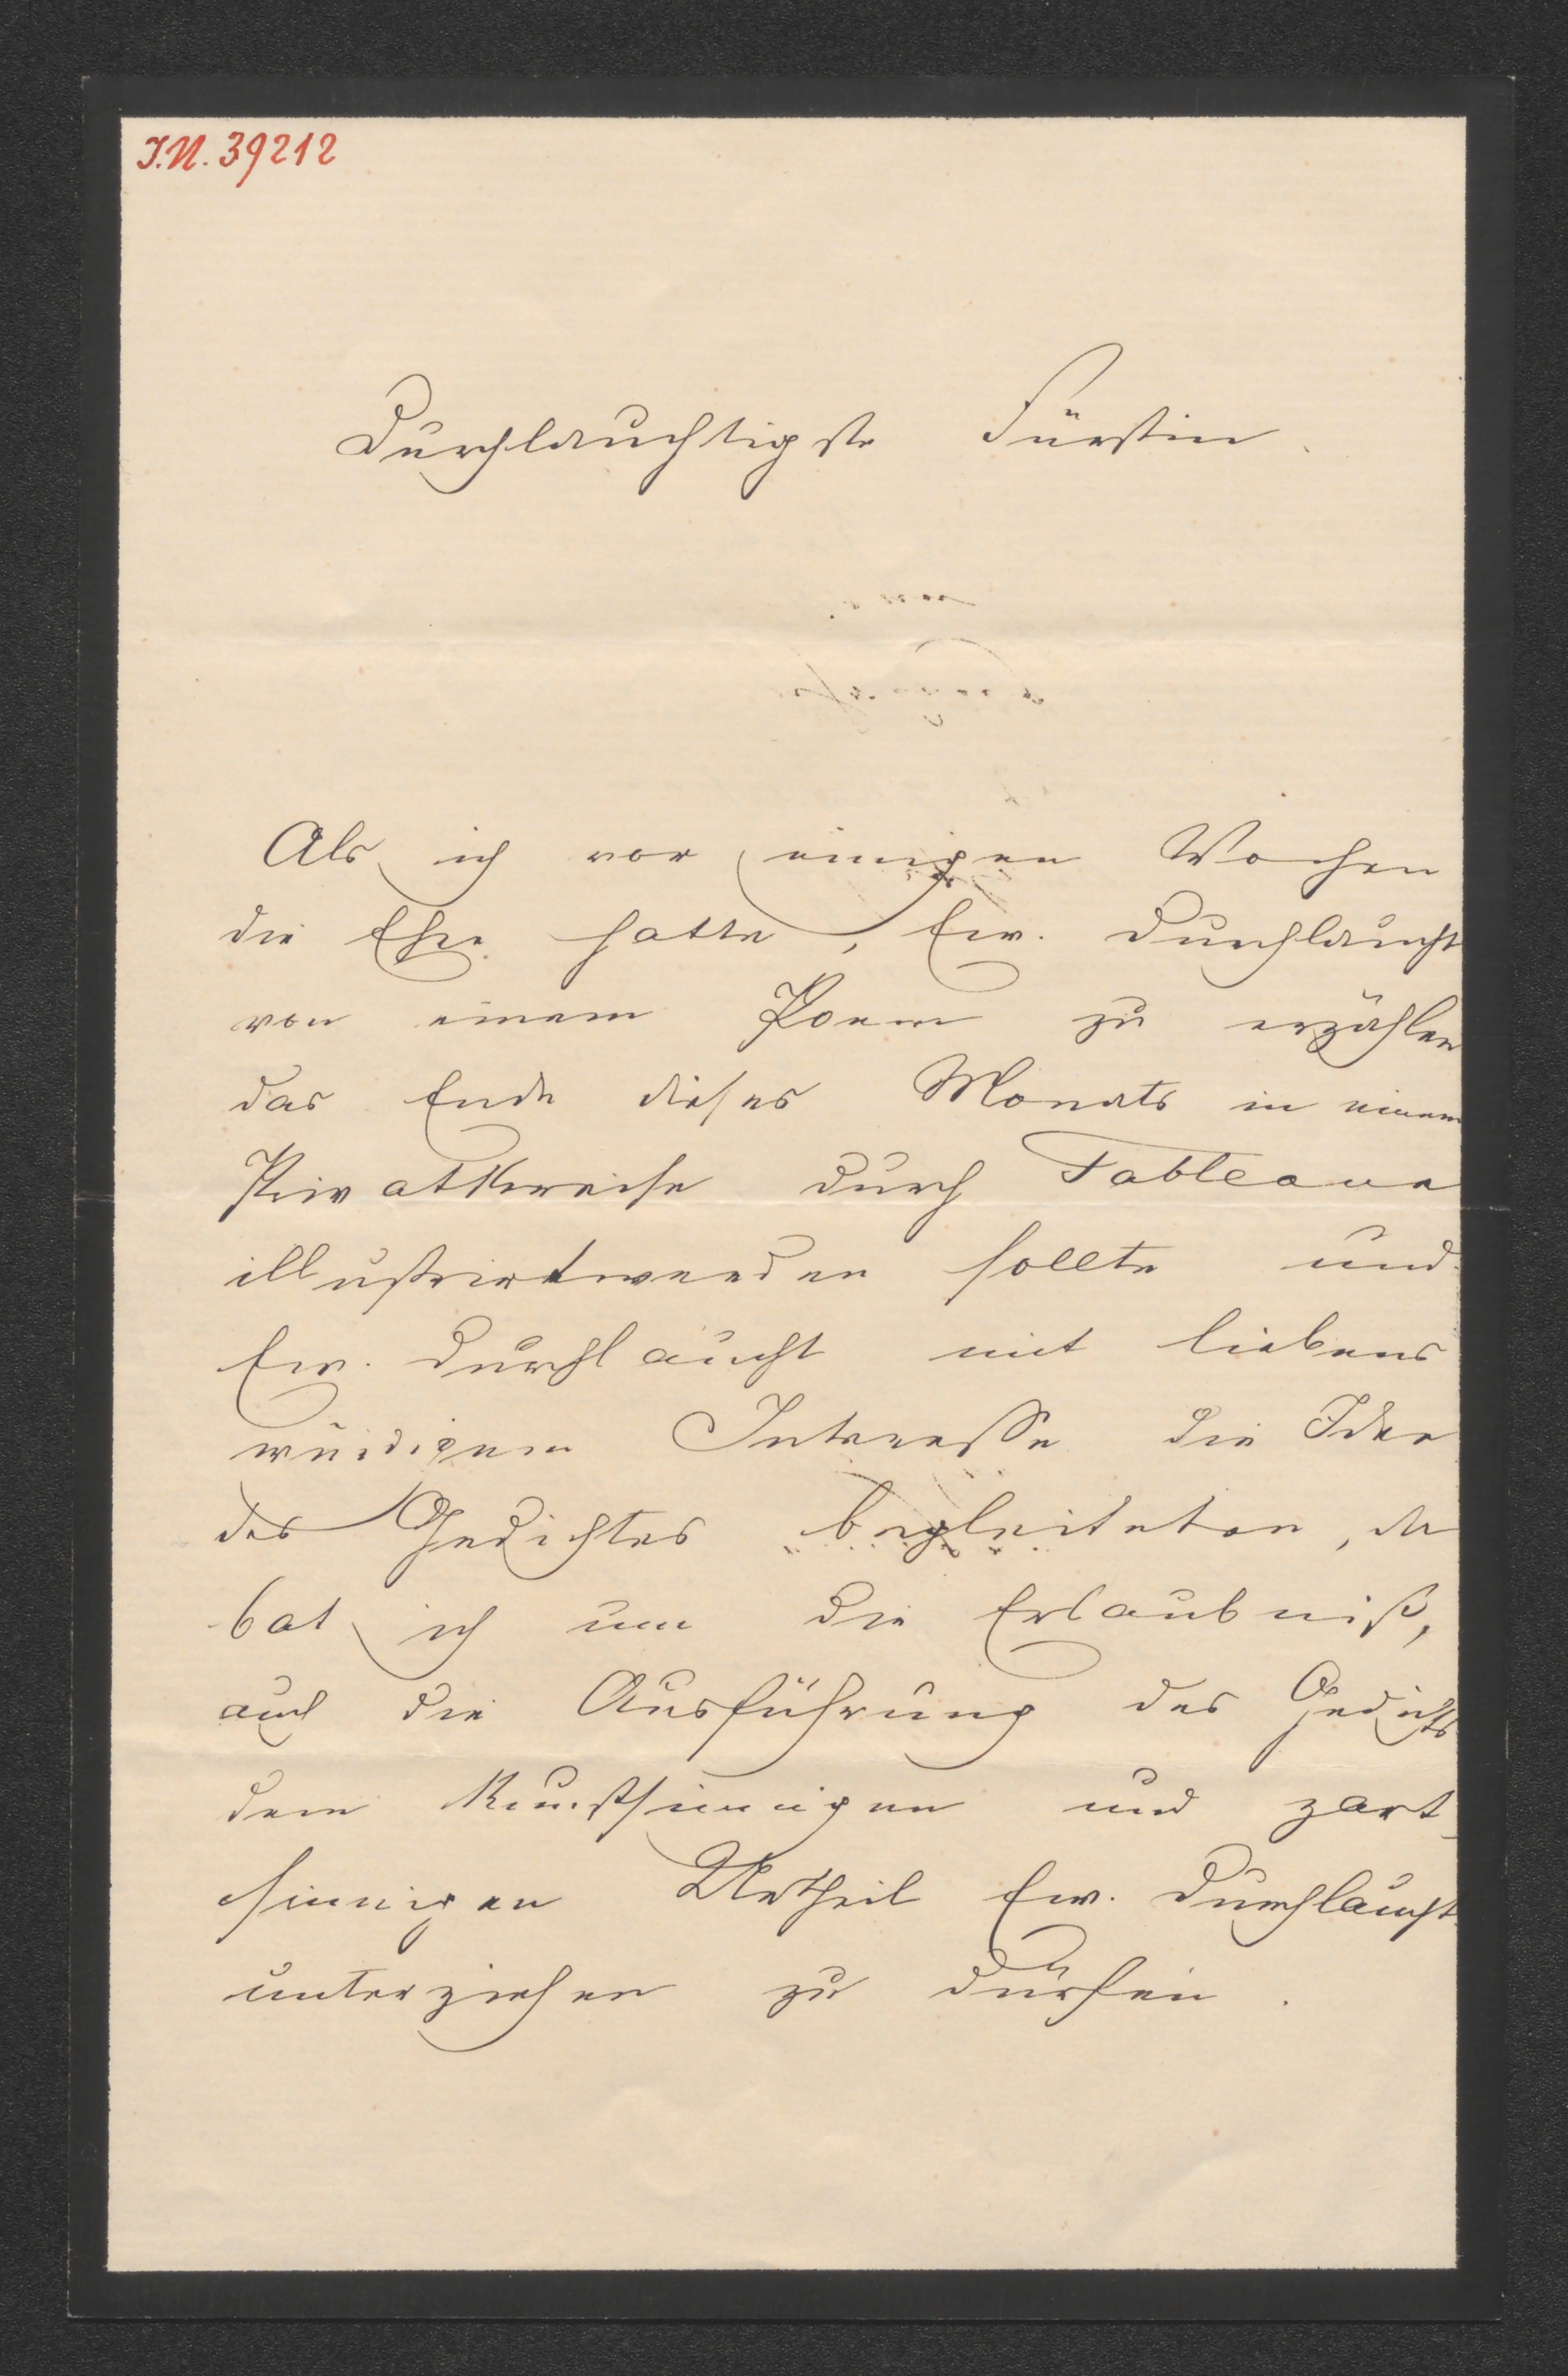 I.N. 39212
Durchlauchtigste Fürstin.
Als ich vor einigen Wochen
die Ehre hatte, Ew. Durchlaucht
von einem Poem zu erzählen
das Ende dieses Monats in einem
Privatkreise durch Tableaux
illustrirt werden sollte und
Ew. Durchlaucht mit liebens
würdigem Interesse die Idee
des Gedichtes begleiteten, da
bat ich um die Erlaubniß,
auch die Ausführung des Gedichts
dem kunstsinnigen und zart
sinnigen Urtheil Ew. Durchlaucht
unterziehen zu dürfen.